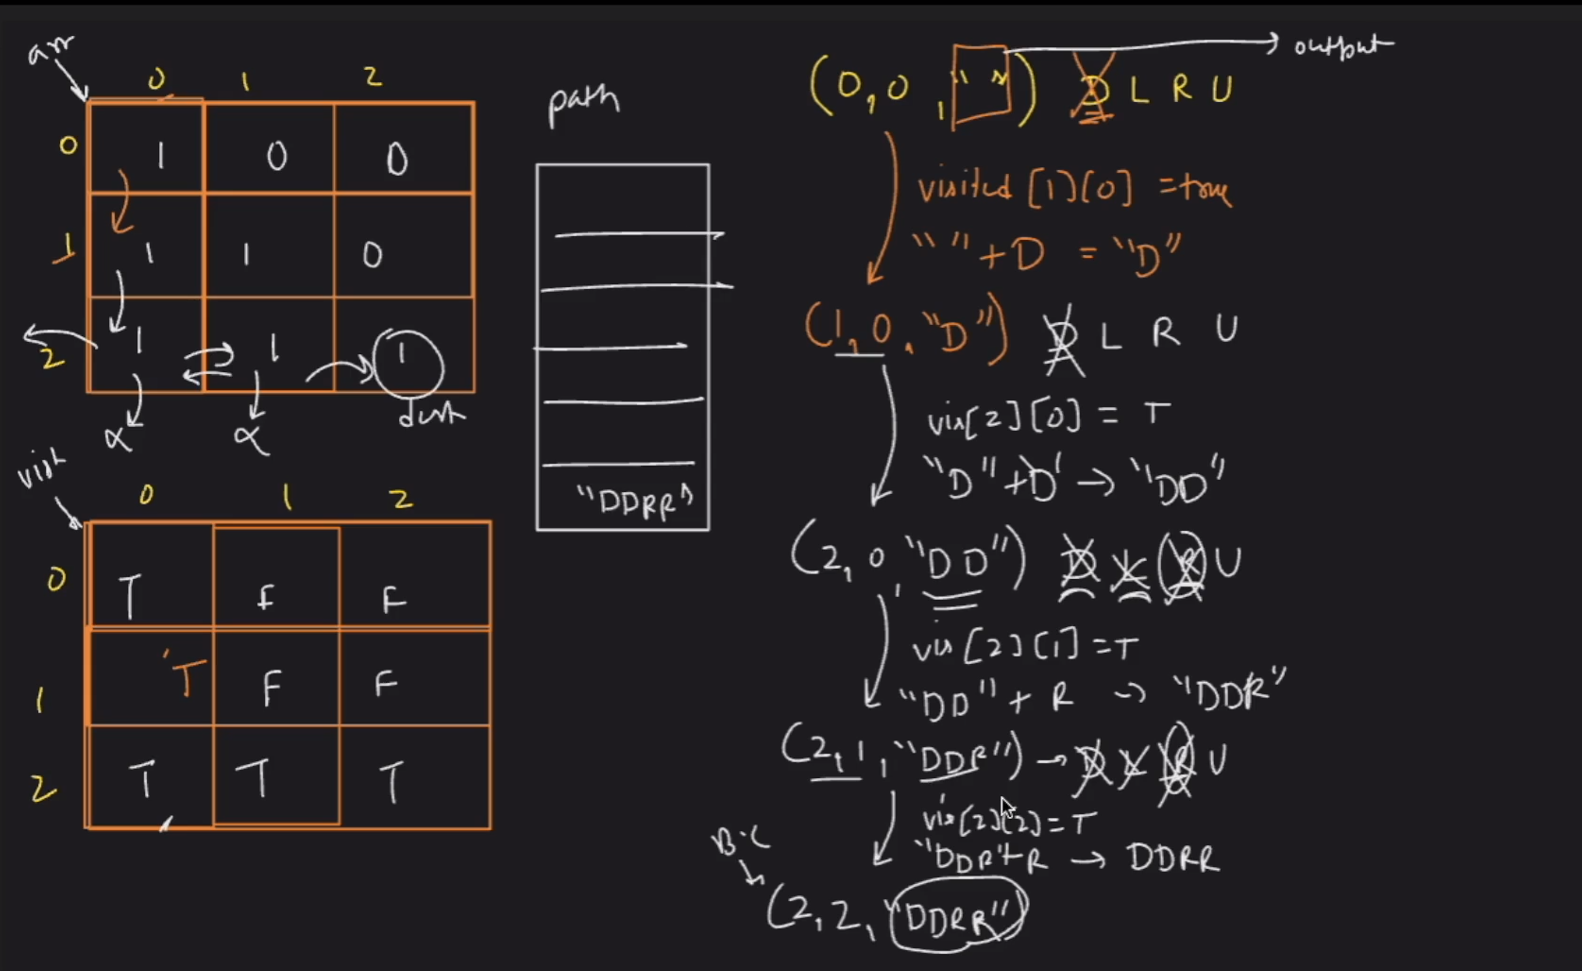 arr
0 1 2
0 1 0 0
1 1 1 0
2 1 1 1
α α dest
visit
0 1 2
0 T F F
1 T F F
2 T T T
path
"DDRR"
(0,0," ") D L R U → output
visited [1][0] = true
" " + D = "D"
(1,0,"D") D L R U
vis[2][0] = T
"D" + D' → "DD"
(2,0,"DD") D L R U
vis[2][1] = T
"DD" + R → "DDR"
(2,1,"DDR") → D L R U
vis[2][2] = T
"DDR" + R → DDRR
B.C
(2,2,"DDRR")